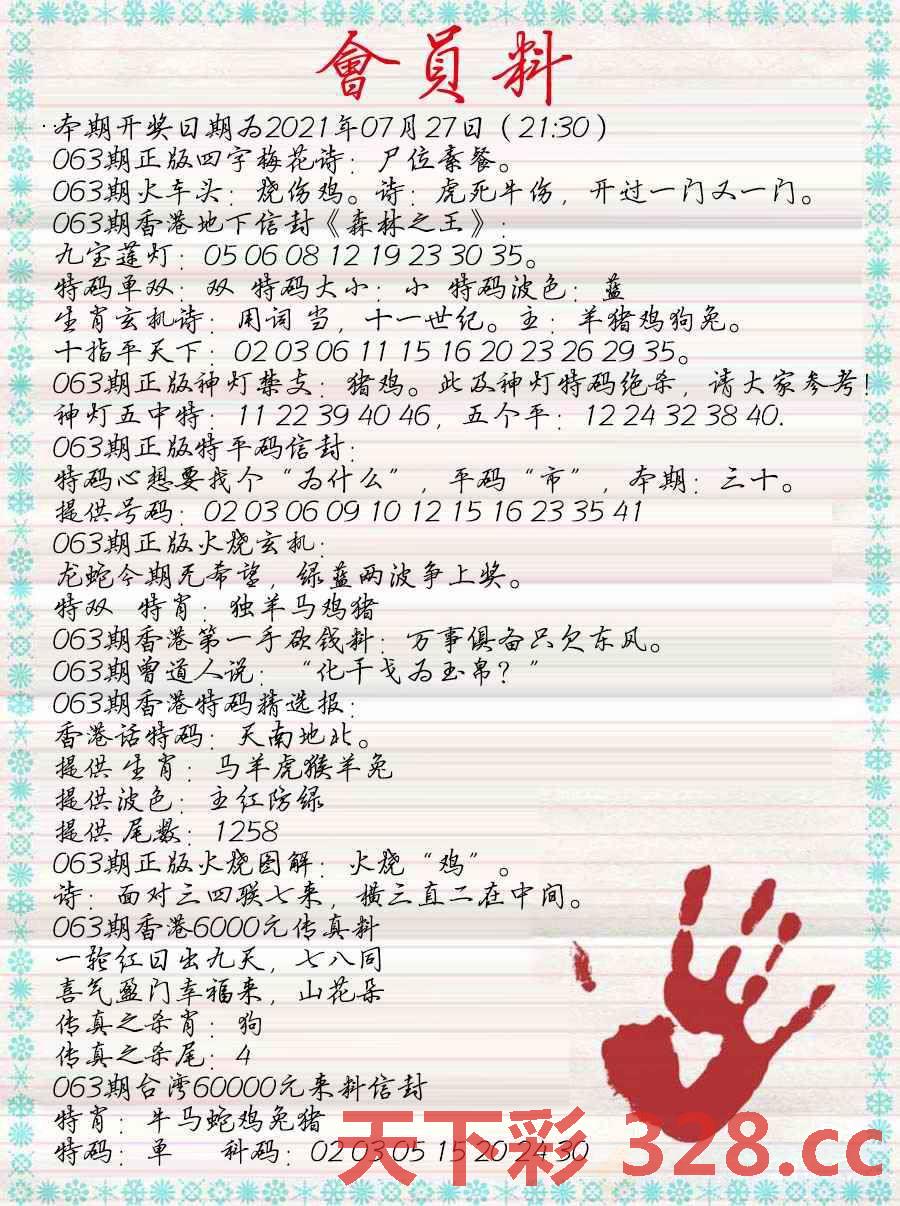 會員料
·本期开奖日期为2021年07月27日（21:30）
063期正版四字梅花诗：尸位素餐。
063期火车头：烧伤鸡。诗：虎死牛伤，开过一门又一门。
063期香港地下信封《森林之王》：
九宝莲灯：05 06 08 12 19 23 30 35。
特码单双：双 特码大小：小 特码波色：蓝
生肖玄机诗：用词 当，十一世纪。主：羊猪鸡狗兔。
十指平天下：02 03 06 11 15 16 20 23 26 29 35。
063期正版神灯禁支：猪鸡。此及神灯特码绝杀，请大家参考！
神灯五中特：11 22 39 40 46，五个平：12 24 32 38 40.
063期正版特平码信封：
特码心想要找个“为什么”，平码“市”，本期：三十。
提供号码：02 03 06 09 10 12 15 16 23 35 41
063期正版火烧玄机：
龙蛇今期无希望，绿蓝两波争上奖。
特双 特肖：独羊马鸡猪
063期香港第一手砍钱料：万事俱备只欠东风。
063期曾道人说：“化干戈为玉帛？”
063期香港特码精选报：
香港话特码：天南地北。
提供 生肖：马羊虎猴羊兔
提供波色：主红防绿
提供 尾数：1258
063期正版火烧图解：火烧“鸡”。
诗：面对三四联七来，横三直二在中间。
063期香港6000元传真料
一轮红日出九天，七八同
喜气盈门幸福来，山花朵
传真之杀肖：狗
传真之杀尾：4
063期台湾60000元来料信封
特肖：牛马蛇鸡兔猪
特码：单 科码：02 03 05 15 20 24 30
天下彩 328.cc